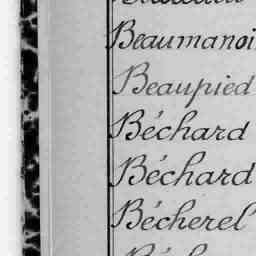 Beaumanoi
Beaupied
Béchard
Béchard
Bécherel